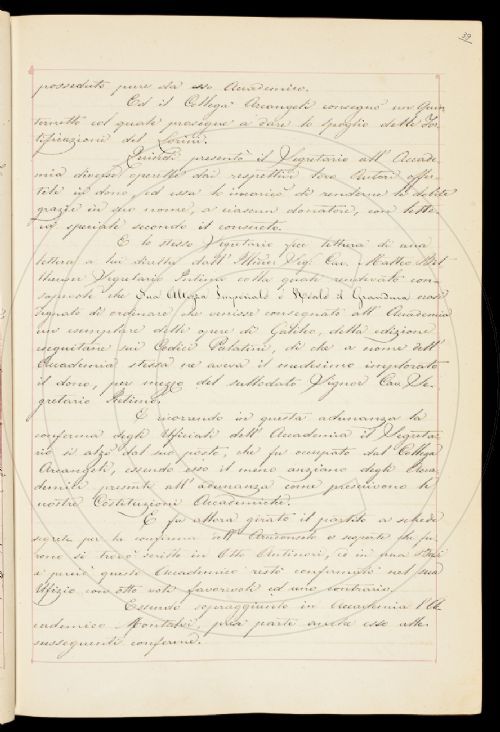 39
posseduto pure da esso Accademico.
Ed il Collega Arcangeli consegnò un Quin
ternetto col quale prosegue a dare lo spoglio delle For
tificazioni del Lorini.
Quindi presentò il Segretario all' Accade
mia diverse operette dai respettivi loro Autori offer
tele in dono, ed essa lo incaricò di renderne le debite
grazie in suo nome, a ciascun donatore, con lette
ra speciale secondo il consueto.
E lo stesso Segretario fece lettura di una
lettera a lui diretta dall' Sig. Cav. Matteo
Segretario Intimo colla quale con-
sapevole che Sua Altezza Imperiale e Reale il Granduca
signato di ordinare che venisse consegnato all' Accademia
un esemplare delle opere di Galileo, della edizione
eseguitane sui Codici Palatini, di che a nome dell'
Accademia stessa ne aveva il medesimo implorato
il dono, per mezzo del sullodato Signor Cav. Se-
gretario
E ricorendo in questa adunanza la
conferma degli Ufficiali dell' Accademia il Segreta
rio si alzò dal suo posto, che fu occupato dal Collega
Arcangeli, essendo esso il meno anziano degli Acca
demici presenti all' adunanza come prescrivono le
nostre Costituzioni Accademiche.
E fu allora girato il partito a schede
segrete per la conferma dell' Arciconsolo e seguito che fu
rono si trovò scritto in Otto Antinori, ed in una
e perciò questo Accademico restò confermato nel suo
Ufizio con otto voti favorevoli ed uno contrario.
Essendo sopraggiunto in Accademia l' Ac
cademico Montalvi, prese parte anche esso alle
susseguenti conferme.